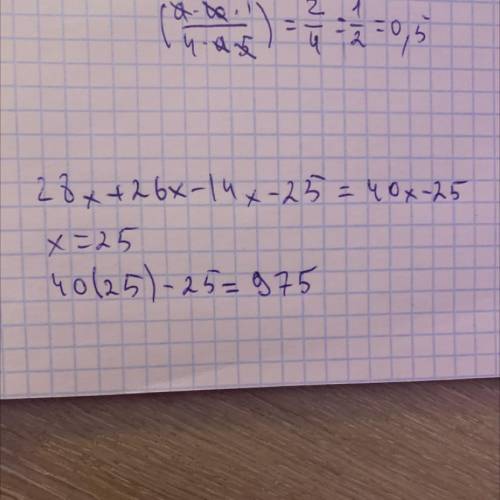 = 2/4 = 1/2 = 0,5
28x+26x-14x-25 = 40x-25
x=25
40(25)-25=975